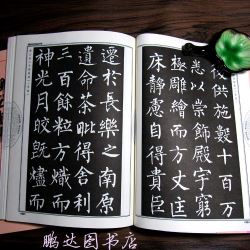 俊供施數十百萬
悉以崇飾殿宇窮
極雕繪而方丈匡
床靜慮自得貴臣
遷於長樂之南原
遺命荼毗得舍利
三百餘粒方熾而
神光月皎既燼而
鹏达图书店